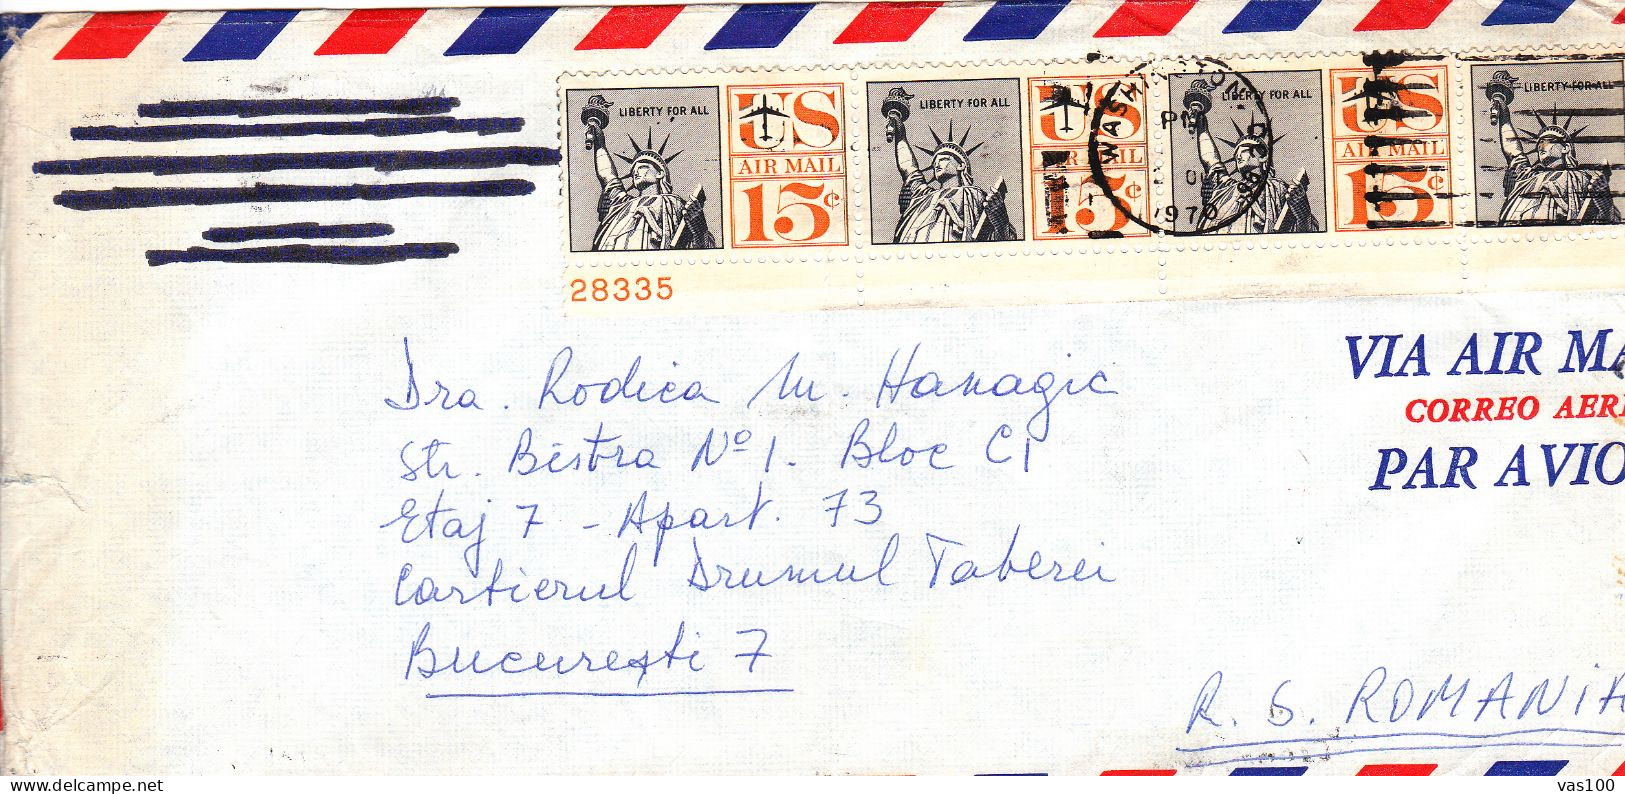 LIBERTY FOR ALL US AIR MAIL 15¢
LIBERTY FOR ALL US AIR MAIL 15¢
LIBERTY FOR ALL US AIR MAIL 15¢
LIBERTY FOR ALL
WASHINGTON
PM
1970
28335
VIA AIR MA
CORREO AERE
PAR AVIO
Dra. Rodica M. Hanagic
Str. Bistra Nº 1. Bloc C1
Etaj 7 - Apart. 73
Cartierul Drumul Taberei
București 7
R. S. ROMANIA
Delcampe.net
vas100